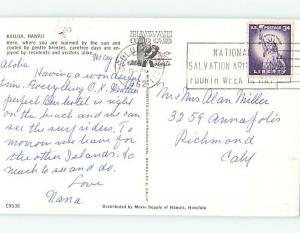 KAILUA, HAWAII
Here, where you are warmed by the sun and
cooled by gentle breezes, carefree days are en-
joyed by residents and visitors alike.
HAWAII
1962
NATIONAL
SALVATION ARMY
FOURTH WEEK IN MAY
3¢
LIBERTY
May
Aloha
Having a wonderful
time. Everything O.K. Weather
perfect. Our hotel is right
on the beach and she can
see the surf riders. To
morrow we leave for
the other Islands. So
much to see and do.
Love
Nana
Mr & Mrs Alan Miller
3259 Annapolis
Richmond
Calif
C9538
Distributed by Movie Supply of Hawaii, Honolulu